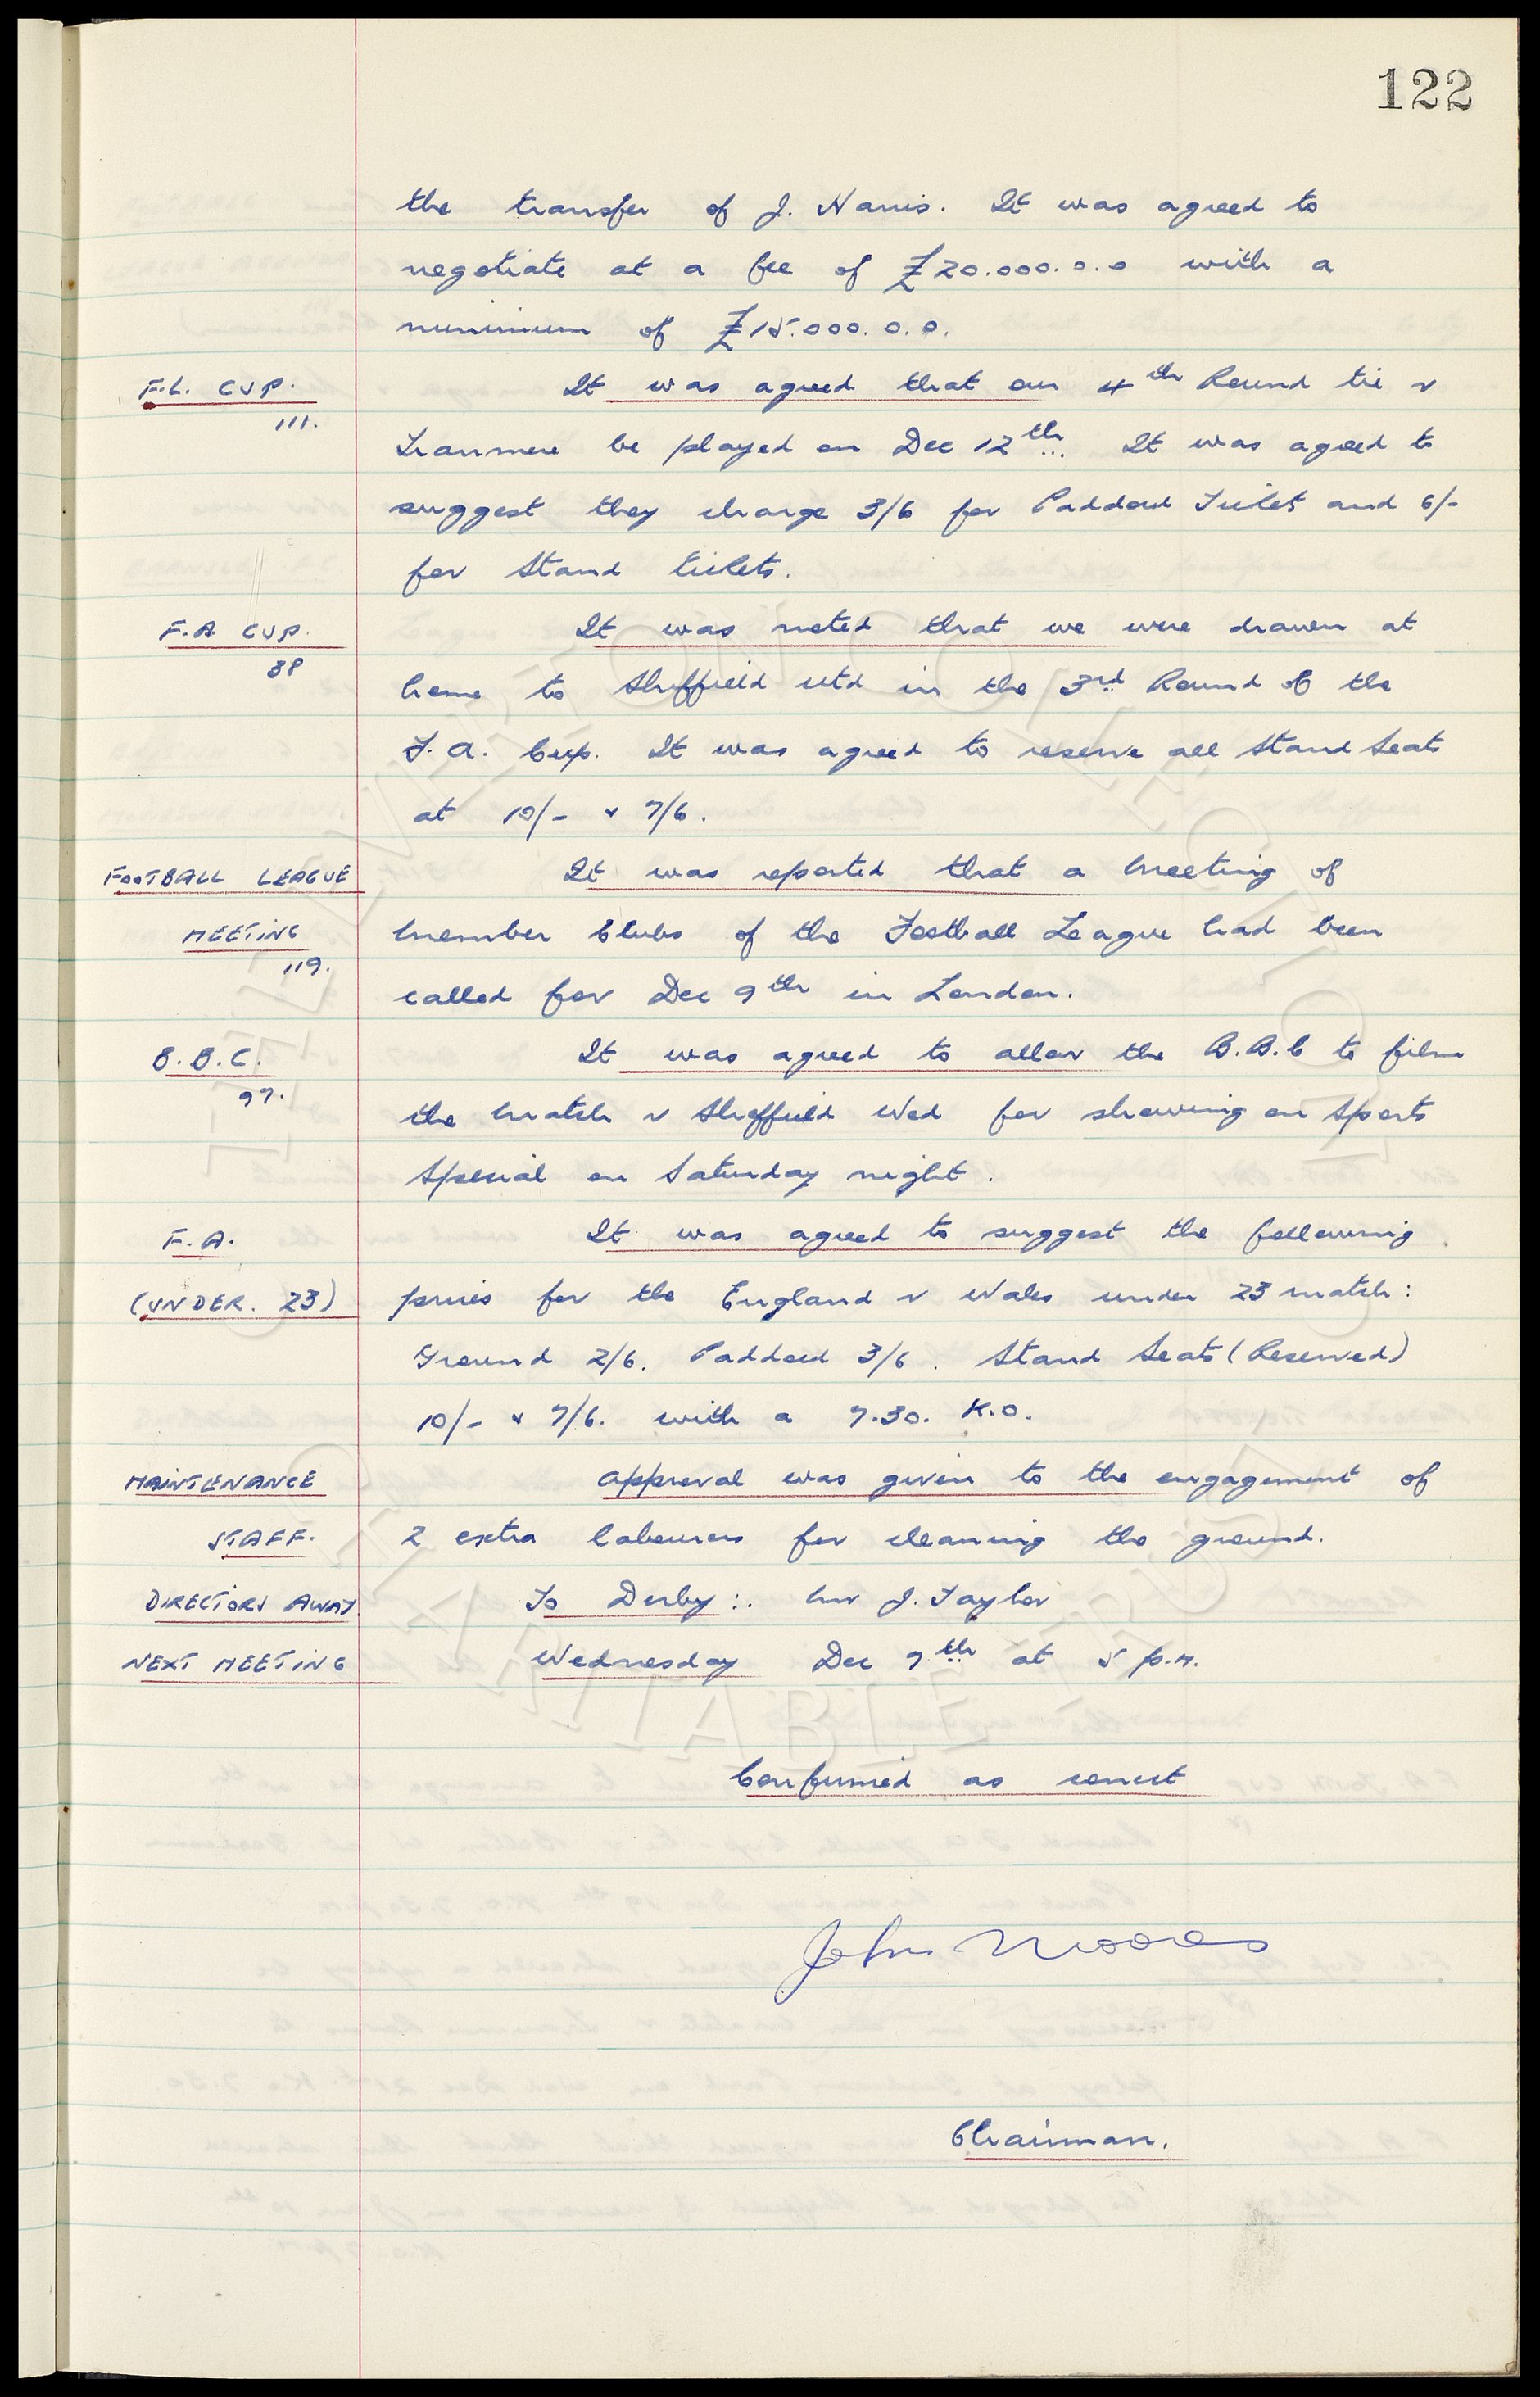 122
the transfer of J. Harris. It was agreed to
negotiate at a fee of £20.000.0.0 with a
minimum of £15.000.0.0.
F.L. CUP. It was agreed that our 4th Round tie v
111.
Tranmere be played on Dec 12th. It was agreed to
suggest they charge 3/6 for Paddock Ticket and 6/-
for Stand tickets.
F.A CUP. It was noted that we were drawn at
38
home to Sheffield Utd in the 3rd Round of the
F.A. Cup. It was agreed to reserve all Stand Seats
at 10/- & 7/6.
FOOTBALL LEAGUE It was reported that a meeting of
MEETING member Clubs of the Football League had been
119.
called for Dec 9th in London.
B.B.C. It was agreed to allow the B.B.C to film
97.
the match v Sheffield Wed for showing on Sports
Special on Saturday night.
F.A. It was agreed to suggest the following
(UNDER. 23) prices for the England v Wales under 23 match:
Ground 2/6. Paddock 3/6. Stand Seats (Reserved)
10/- & 7/6. with a 7.30. K.O.
MAINTENANCE Approval was given to the engagement of
STAFF. 2 extra labourers for cleaning the ground.
DIRECTORS AWAY To Derby:. Mr J. Taylor
NEXT MEETING Wednesday Dec 7th at 5 p.m.
Confirmed as correct
John Moores
Chairman.